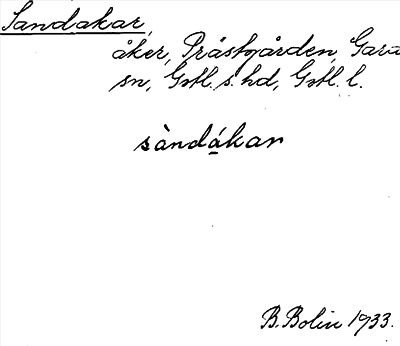 Sandakar,
åker, Prästgården, Gara
sn, Gotl. s. hd, Gotl. l.
sàndákar
B. Bolin 1933.